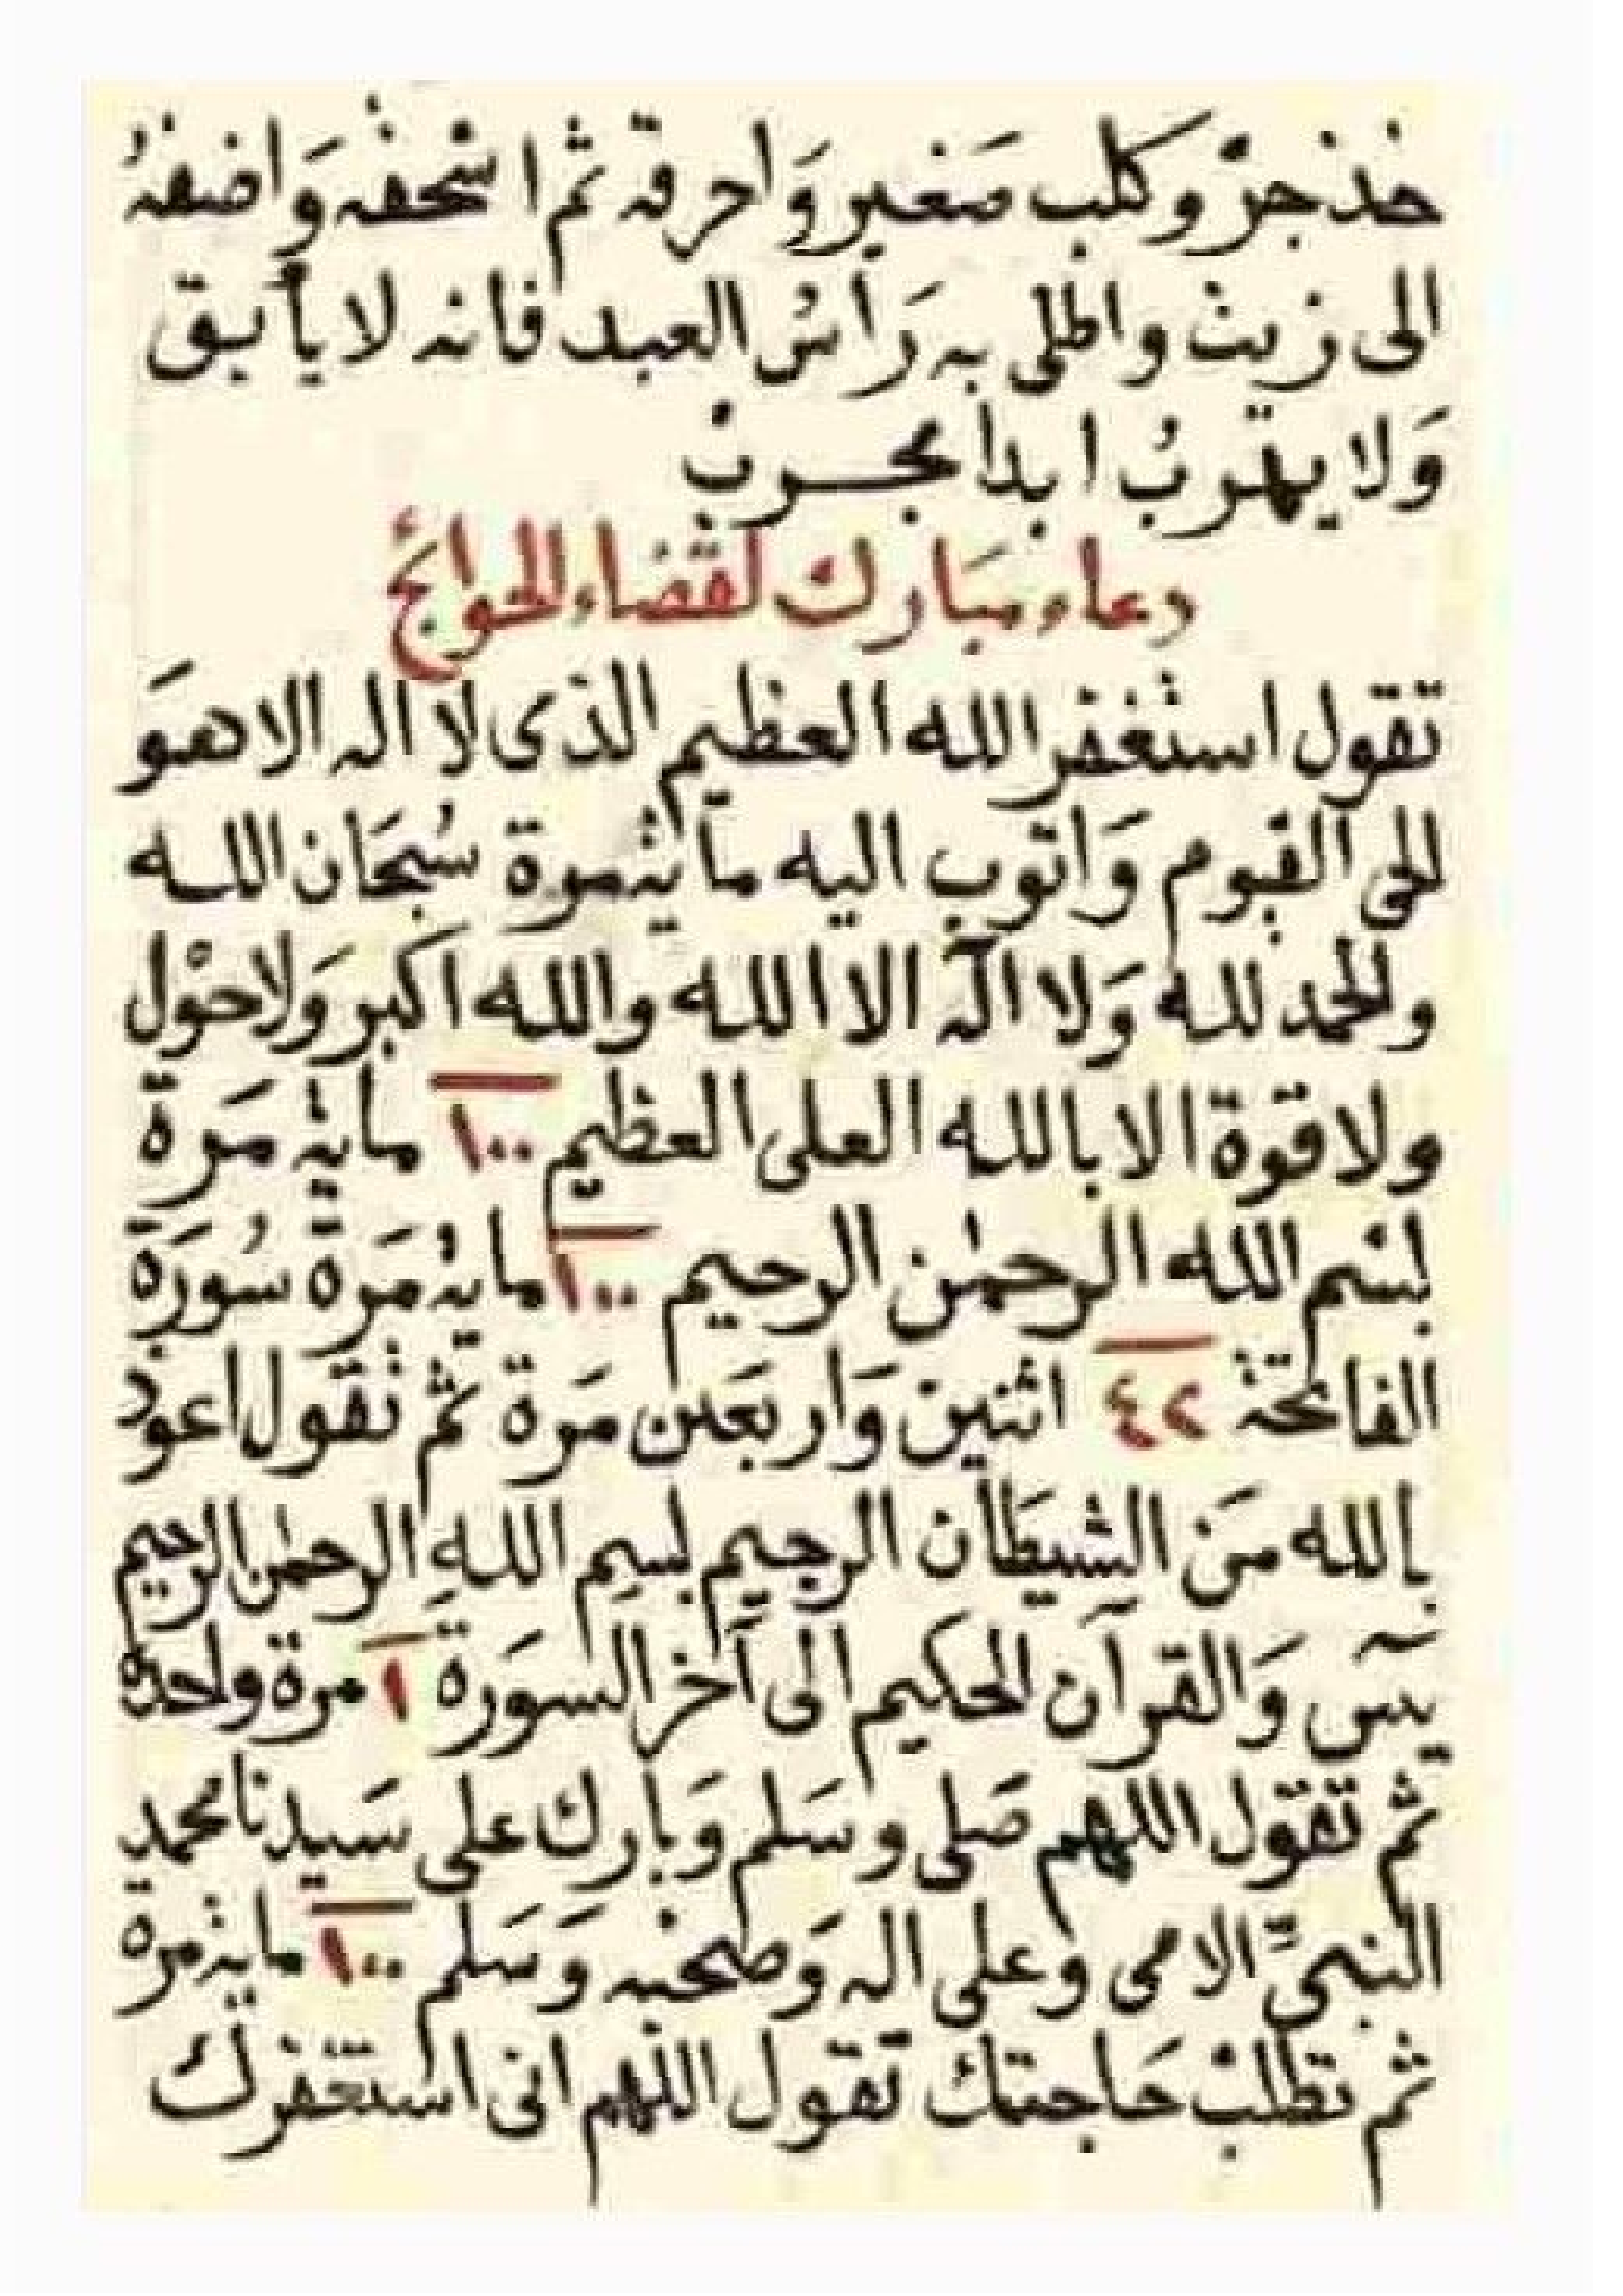 خذ جرّو كلب صَغير وَاحرقه ثم اشحقه وَاضفهُ
الى زيت واطلى به رَأسُ العبد فانه لا يأبق
وَلا يهرَبُ ابدا مجرب
دعاء مبَارك لقضاء الحوائج
تقول استغفر الله العظيم الذى لا اله الا هوَ
الحى القيوم وَاتوب اليه ماية مرة سُبحَان اللـه
والحمد لله وَلا اله الا الله والله اكبر وَلا حوْل
ولا قوة الا بالله العلى العظيم ١٠٠ ماية مَرة
بسْم الله الرحمٰن الرحيم ١٠٠ ماية مَرة سُورَة
الفاتحة ٤٢ اثنين وَاربَعَين مَرة ثم تقول اعوذ
بالله مَن الشيطَان الرجيم بسِم اللهِ الرحمٰن الرحيم
يسٓ وَالقرآن الحكيم الى آخر السوَرة ١ مرة واحدة
ثم تقول اللهم صَلى وسَلم وَبارك على سَيدنا محمد
النبىِّ الامى وَعلى اله وَصحبه وَسَلم ١٠٠ ماية مرة
ثم تطلبْ حَاجتك تقول اللهم انى استغفرك